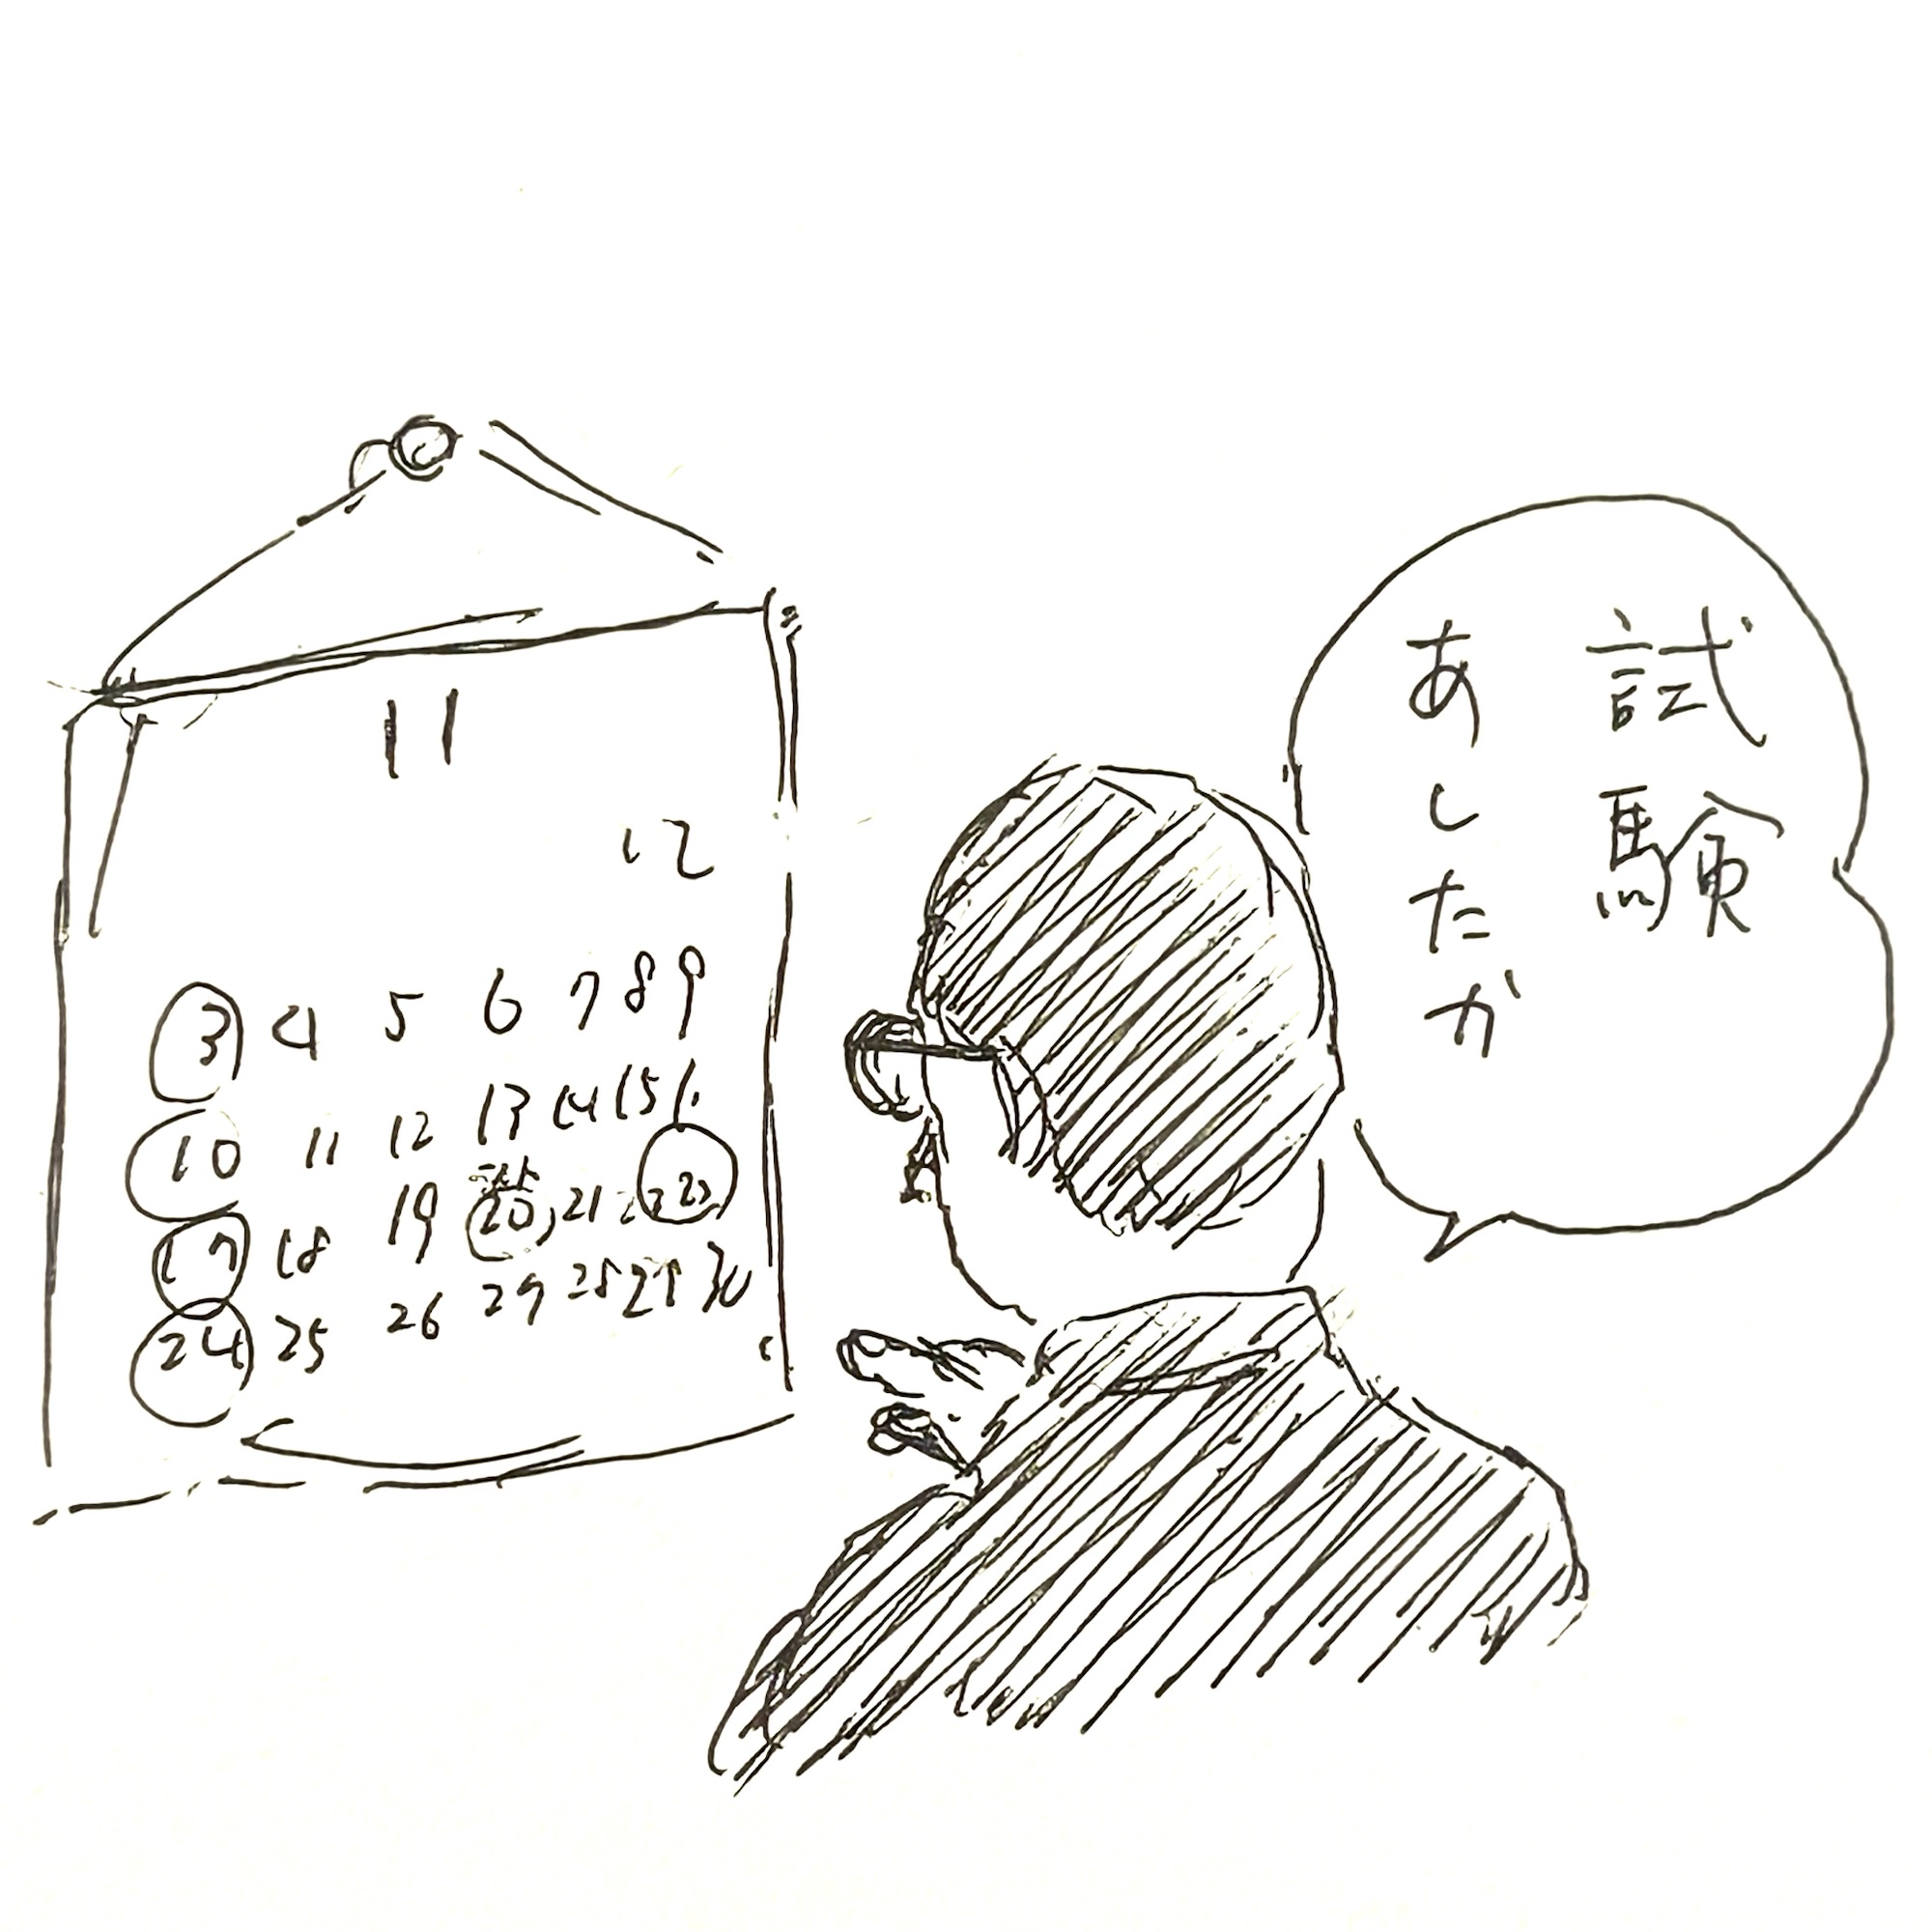 11
1 2
3 4 5 6 7 8 9
10 11 12 13 14 15 16
試
17 18 19 20 21 22 23
24 25 26 29 28 29 30
試験
あしたか